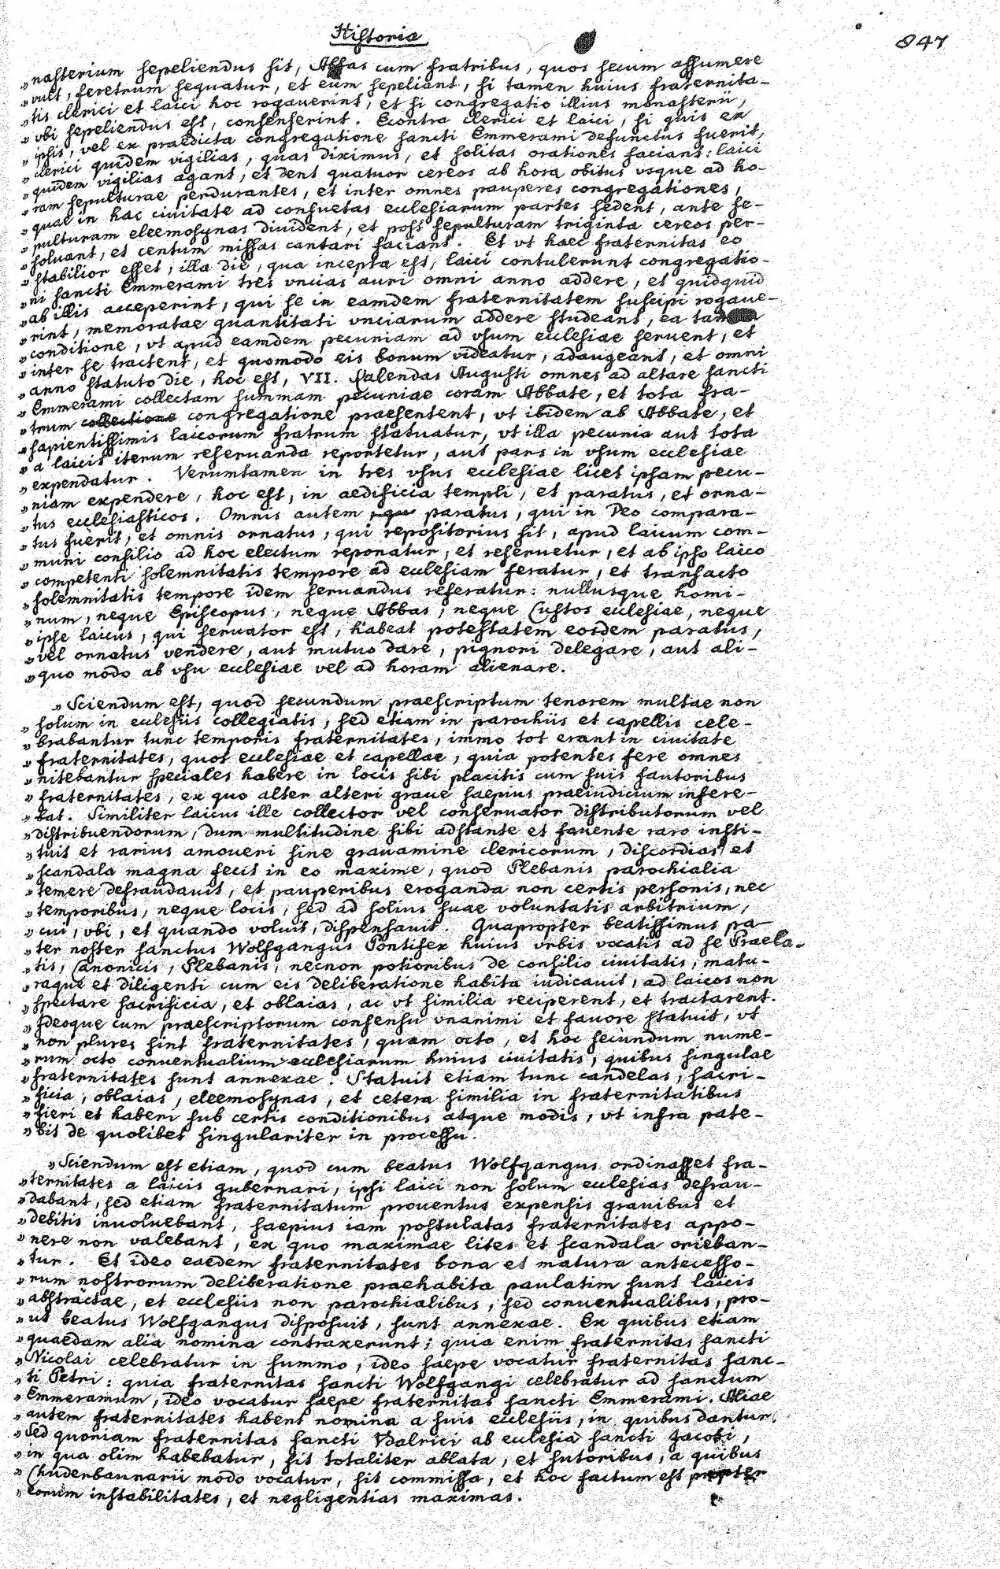 Historia
847
„nasterium sepeliendus sit, Abbas cum fratribus, quos secum assumere
„vult, feretrum sequatur, et eum sepeliant, si tamen huius fraternita-
„tis clerici et laici hoc rogauerint, et si congregatio illius monasterii,
„vbi sepeliendus est, consenserint. Econtra clerici et laici, si quis ex
„ipsis, vel ex praedicta congregatione sancti Emmerami defunctus fuerit,
„clerici quidem vigilias, quas diximus, et solitas orationes faciant: laici
„quidem vigilias agant, et dent quatuor cereos ab hora obitus vsque ad ho-
„ram sepulturae perdurantes, et inter omnes pauperes congregationes,
„quae in hac ciuitate ad consuetas ecclesiarum partes sedent, ante se-
„pulturam eleemosynas diuident, et post sepulturam triginta cereos per-
„soluant, et centum missas cantari faciant. Et vt haec fraternitas eo
„stabilior esset, illa die, qua incepta est, laici contulerunt congregatio-
„ni sancti Emmerami tres vncias auri omni anno addere, et quidquid
„ab illis acceperint, qui se in eamdem fraternitatem suscipi rogaue-
„rint, memoratae quantitati vnciarum addere studeant, ea tamen
„conditione, vt apud eamdem pecuniam ad vsum ecclesiae seruent, et
„inter se tractent, et quomodo eis bonum videatur, adaugeant, et omni
„anno statuto die, hoc est, VII. Kalendas Augusti omnes ad altare sancti
„Emmerami collectam summam pecuniae coram Abbate, et tota fra-
„trum collectione congregatione praesentent, vt ibidem ab Abbate, et
„sapientissimis laicorum fratrum statuatur, vt illa pecunia aut tota
„a laicis iterum reseruanda reportetur, aut pars in vsum ecclesiae
„expendatur. Verumtamen in tres vsus ecclesiae licet ipsam pecu-
„niam expendere, hoc est, in aedificia templi, et paratus, et orna-
„tus ecclesiasticos. Omnis autem paratus, qui in Deo compara-
„tus fuerit, et omnis ornatus, qui repositorius sit, apud laicum com-
„muni consilio ad hoc electum reponatur, et reseruetur, et ab ipso laico
„competenti solemnitatis tempore ad ecclesiam feratur, et transacto
„solemnitatis tempore idem seruandus referatur: nullusque homi-
„num, neque Episcopus, neque Abbas, neque Custos ecclesiae, neque
„ipse laicus, qui seruator est, habeat potestatem eosdem paratus,
„vel ornatus vendere, aut mutuo dare, pignori delegare, aut ali-
„quo modo ab vsu ecclesiae vel ad horam alienare.
„Sciendum est, quod secundum praescriptum tenorem multae non
„solum in ecclesiis collegiatis, sed etiam in parochiis et capellis cele-
„brabantur tunc temporis fraternitates, immo tot erant in ciuitate
„fraternitates, quot ecclesiae et capellae, quia potentes fere omnes
„nitebantur speciales habere in locis sibi placitis cum suis fautoribus
„fraternitates, ex quo alter alteri graue saepius praeiudicium infere-
„bat. Similiter laicus ille collector vel conseruator distributorum vel
„distribuendorum, dum multitudine sibi adstante et fauente raro insti-
„tuit et rarius amoueri sine grauamine clericorum, discordias et
„scandala magna fecit in eo maxime, quod Plebanis parochialia
„temere defraudauit, et pauperibus eroganda non certis personis, nec
„temporibus, neque locis, sed ad solius suae voluntatis arbitrium,
„cui, vbi, et quando voluit, dispensauit. Quapropter beatissimus pa-
„ter noster sanctus Wolfgangus Pontifex huius vrbis vocatis ad se Praela-
„tis, Canonicis, Plebanis, necnon potioribus de consilio ciuitatis, matu-
„raque et diligenti cum eis deliberatione habita iudicauit, ad laicos non
„spectare sacrificia, et oblaias, ac vt similia reciperent, et tractarent.
„Ideoque cum praescriptorum consensu vnanimi et fauore statuit, vt
„non plures sint fraternitates, quam octo, et hoc secundum nume-
„rum octo conuentualium ecclesiarum huius ciuitatis, quibus singulae
„fraternitates sunt annexae. Statuit etiam tunc candelas, sacri-
„ficia, oblaias, eleemosynas, et cetera similia in fraternitatibus
„fieri et haberi sub certis conditionibus atque modis, vt infra pate-
„bit de quolibet singulariter in processu.
„Sciendum est etiam, quod cum beatus Wolfgangus ordinasset fra-
„ternitates a laicis gubernari, ipsi laici non solum ecclesias defrau-
„dabant, sed etiam fraternitatum prouentus expensis grauibus et
„debitis inuoluebant, saepius iam postulatas fraternitates appo-
„nere non valebant, ex quo maximae lites et scandala orieban-
„tur. Et ideo eaedem fraternitates bona et matura antecesso-
„rum nostrorum deliberatione praehabita paulatim sunt laicis
„abstractae, et ecclesiis non parochialibus, sed conuentualibus, pro-
„ut beatus Wolfgangus disposuit, sunt annexae. Ex quibus etiam
„quaedam alia nomina contraxerunt; quia enim fraternitas sancti
„Nicolai celebratur in summo, ideo saepe vocatur fraternitas sanc-
„ti Petri: quia fraternitas sancti Wolfgangi celebratur ad sanctum
„Emmeramum, ideo vocatur saepe fraternitas sancti Emmerami. Aliae
„autem fraternitates habent nomina a suis ecclesiis, in quibus dantur.
„Sed quoniam fraternitas sancti Vdalrici ab ecclesia sancti Jacobi,
„in qua olim habebatur, sit totaliter ablata, et sutoribus, a quibus
„Chuderbaunarii modo vocatur, sit commissa, et hoc factum est propter
„eorum instabilitates, et negligentias maximas.